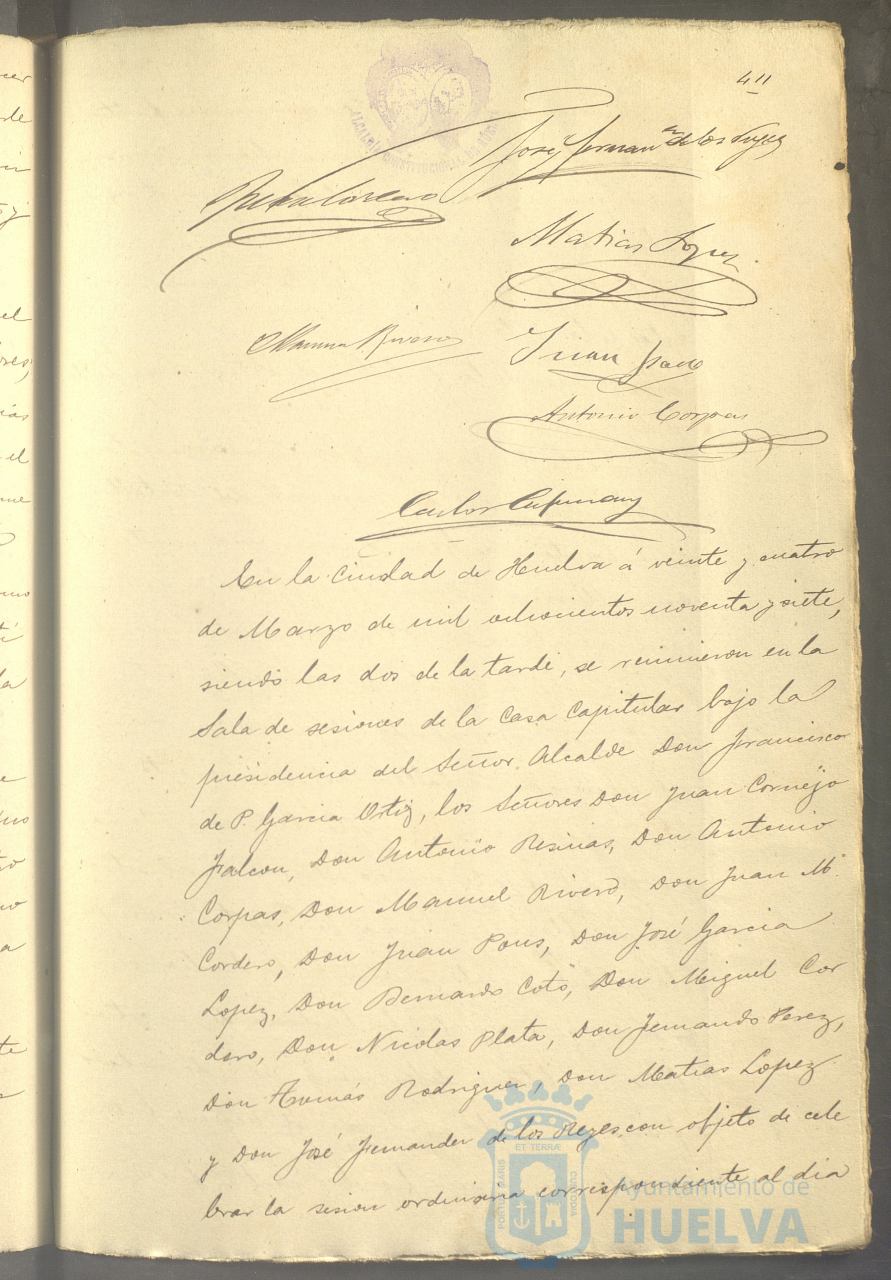 411
José Fernan^ez de los Reyes
Matias Lopez
Manuel Rivero
Juan
Antonio Corpas
Carlos
En la Ciudad de Huelva á veinte y cuatro
de Marzo de mil ochocientos noventa y siete,
siendo las dos de la tarde, se reunieron en la
Sala de sesiones de la Casa Capitular bajo la
presidencia del Señor Alcalde Don Francisco
de P. Garcia Ortiz, los Señores Don Juan Cornejo
Falcon, Don Antonio Resinas, Don Antonio
Corpas, Don Manuel Rivero, Don Juan M.
Cordero, Don Juan Pons, Don José Garcia
Lopez, Don Bernardo Coto, Don Miguel Cor
dero, Don Nicolas Plata, Don Fernando Perez,
Don Tomás Rodriguez, Don Matias Lopez
y Don José Fernandez de los Reyes con objeto de cele
brar la sesion ordinaria correspondiente al dia
PORTUS MARIS ET TERRÆ CUSTODIA
Ayuntamiento de
HUELVA